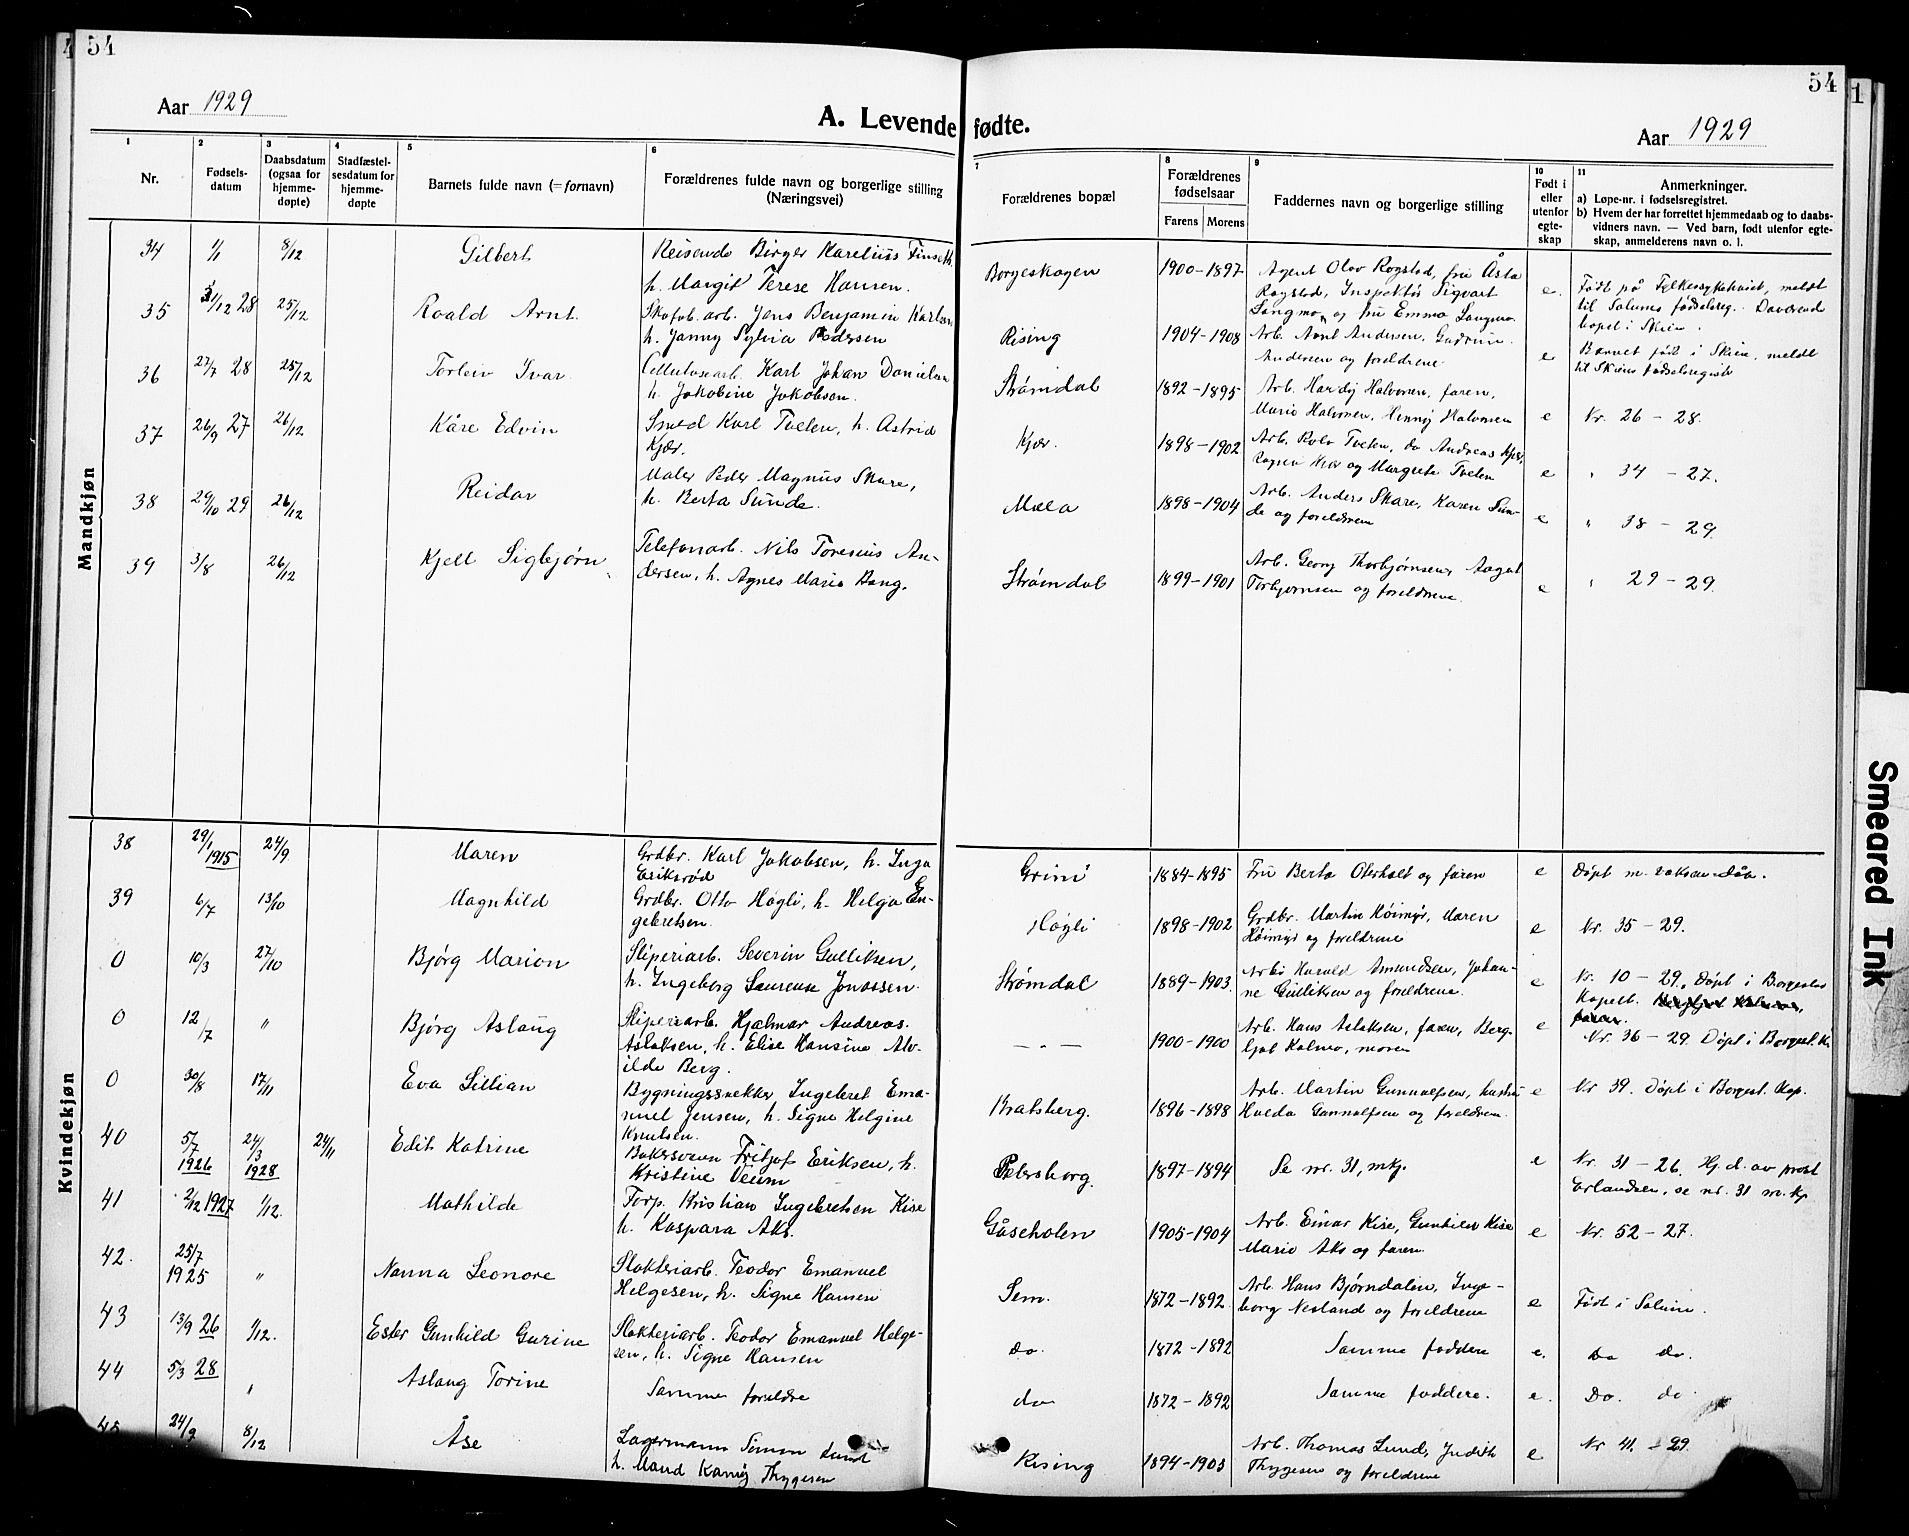 54
54
Aar 1929
A. Levende fødte.
Aar 1929
1
2
3
4
5
6
7
8
9
10
11
Nr.
Fødsels-
datum
Daabsdatum
(ogsaa for
hjemme-
døpte)
Stadfæstel-
sesdatum for
hjemme-
døpte
Barnets fulde navn (= fornavn)
Forældrenes fulde navn og borgerlige stilling
(Næringsvei)
Forældrenes bopæl
Forældrenes
fødselsaar
Farens
Morens
Faddernes navn og borgerlige stilling
Født i
eller
utenfor
egte-
skap
Anmerkninger.
a) Løpe-nr. i fødselsregistret.
b) Hvem der har forrettet hjemmedaab og to daabs-
vidners navn. — Ved barn, født utenfor egte-
skap, anmelderens navn o. l.
Mandkjøn
34 1/1 8/12 Gilbert
Reisende Birger Karelius Finseth
h. Margit Terese Hansen.
Borgeskogen 1900-1897
Agent Olov Rogstad, fru Åsta
Rogstad, Inspektør Sigvart
Langmo og fru Emma Langmo
e.
Født på Fylkessykehuset, meldt
til Solums fødselsreg. Daværende
bopel i Skien.
35 31/12 28 25/12 Roald Arnt
Skofab.arb. Jens Benjamin Karlsen
h. Jenny Sylvia Pedersen
Rising 1904-1908
Arb. Arnt Andersen, Gudrun
Andersen og foreldrene
e
Barnet født i Skien, meldt
til Skiens fødselsregister
36 27/7 28 25/12 Torleiv Ivar
Cellulosearb. Karl Johan Danielsen
h. Jakobine Jakobsen.
Strømdal 1892-1895
Arb. Hardy Halvorsen, faren,
Marie Halvorsen, Henny Halvorsen
e Nr. 26 - 28.
37 26/9 27 26/12 Kåre Edvin
Smed Karl Tveten, h. Astrid
Kjær.
Kjær. 1898-1902
Arb. Rolv Tveten, do Andreas Kjær,
og Margrete Tveten
e " 34 - 27.
38 29/10 29 26/12 Reidar
Maler Peder Magnus Skare,
h. Berta Sunde.
Mæla 1898-1904
Arb. Anders Skare, Karen Sun-
de og foreldrene
e " 38 - 29.
39 3/8 26/12 Kjell Sigbjørn
Telefonarb. Nils Toresius An-
dersen, h. Agnes Marie Bang.
Strømdal 1899-1901
Arb. Georg Thorbjørnsen, Aagot
Torbjørnsen og foreldrene.
e " 29 - 29.
Kvindekjøn
38 29/1 1915 24/9 Maren
Grdbr. Karl Jakobsen, h. Inga
Eriksrød
Grini 1884-1895
Fru Berta Oterholt og faren
e Døpt m. voksen-dåp.
39 6/7 13/10 Magnhild
Grdbr. Otto Høgli, h. Helga En-
gebretsen.
Høgli 1898-1902
Grdbr. Martin Høimyr, Maren
Høimyr og foreldrene
e Nr. 35 - 29.
0 10/3 27/10 Bjørg Marion
Sliperiarb. Severin Gulliksen,
h. Ingeborg Laurense Jonassen.
Strømdal 1889-1903.
Arb. Harald Amundsen, Johan-
ne Gulliksen og foreldrene.
e
Nr. 10 - 29. Døpt i Borgestad
Kapell.
0 12/7 " Bjørg Aslaug
Sliperiarb. Hjalmar Andreas
Aslaksen, h. Elise Hansine Alv-
ilde Berg.
— " — 1900-1900
Arb. Hans Aslaksen, faren, Berg-
ljot Kalmo, moren
e Nr. 36 - 29. Døpt i Borgest. K.
0 30/8 17/11 Eva Lillian
Bygningssnekker Ingebret Ema-
nuel Jensen, h. Signe Helgine
Knutsen.
Bratsberg. 1896-1898
Arb. Martin Gunnulfsen, hustru
Hulda Gunnulfsen og foreldrene.
e Nr 39. Døpt i Borgest. Kap.
40 5/7 1926 24/3 1928 24/11 Edit Katrine
Bakersvenn Fritjof Eriksen, h.
Kristine Veum
Petersborg. 1897-1894
Se nr. 31, mkj.
e
Nr. 31 - 26. Hj.d. av prost
Erlandsen, se nr. 31 m.kj.
41 2/12 1927 1/12. Mathilde
Forp. Kristian Ingebretsen Kise
h. Kaspara Aks.
Gåseholen 1905-1904
Arb. Einar Kise, Gunhild Kise
Marie Aks og faren
e Nr. 52 - 27.
42. 25/7 1925 " Nanna Leonore
Slakteriarb. Teodor Emanuel
Helgesen, h. Signe Hansen
Sem. 1872-1892.
Arb. Hans Bjørndalen, Inge-
borg Nesland og foreldrene
e Født i Solum.
43 13/9 26 1/12. Ester Gunhild Gurine
Slakteriarb. Teodor Emanuel Helge-
sen, h. Signe Hansen
do. 1872-1892 Samme faddere e. Do do.
44 5/3 28 " Aslaug Torine
Samme foreldre
do 1872-1892 Samme faddere. e. Do. do.
45 24/9 8/12 Åse
Lagermann Simon Lund
h. Maud Kanny Thygesen
Rising 1894-1903
Arb. Thomas Lund, Judith
Thygesen og foreldrene
e Nr 41. - 29.
Smeared Ink